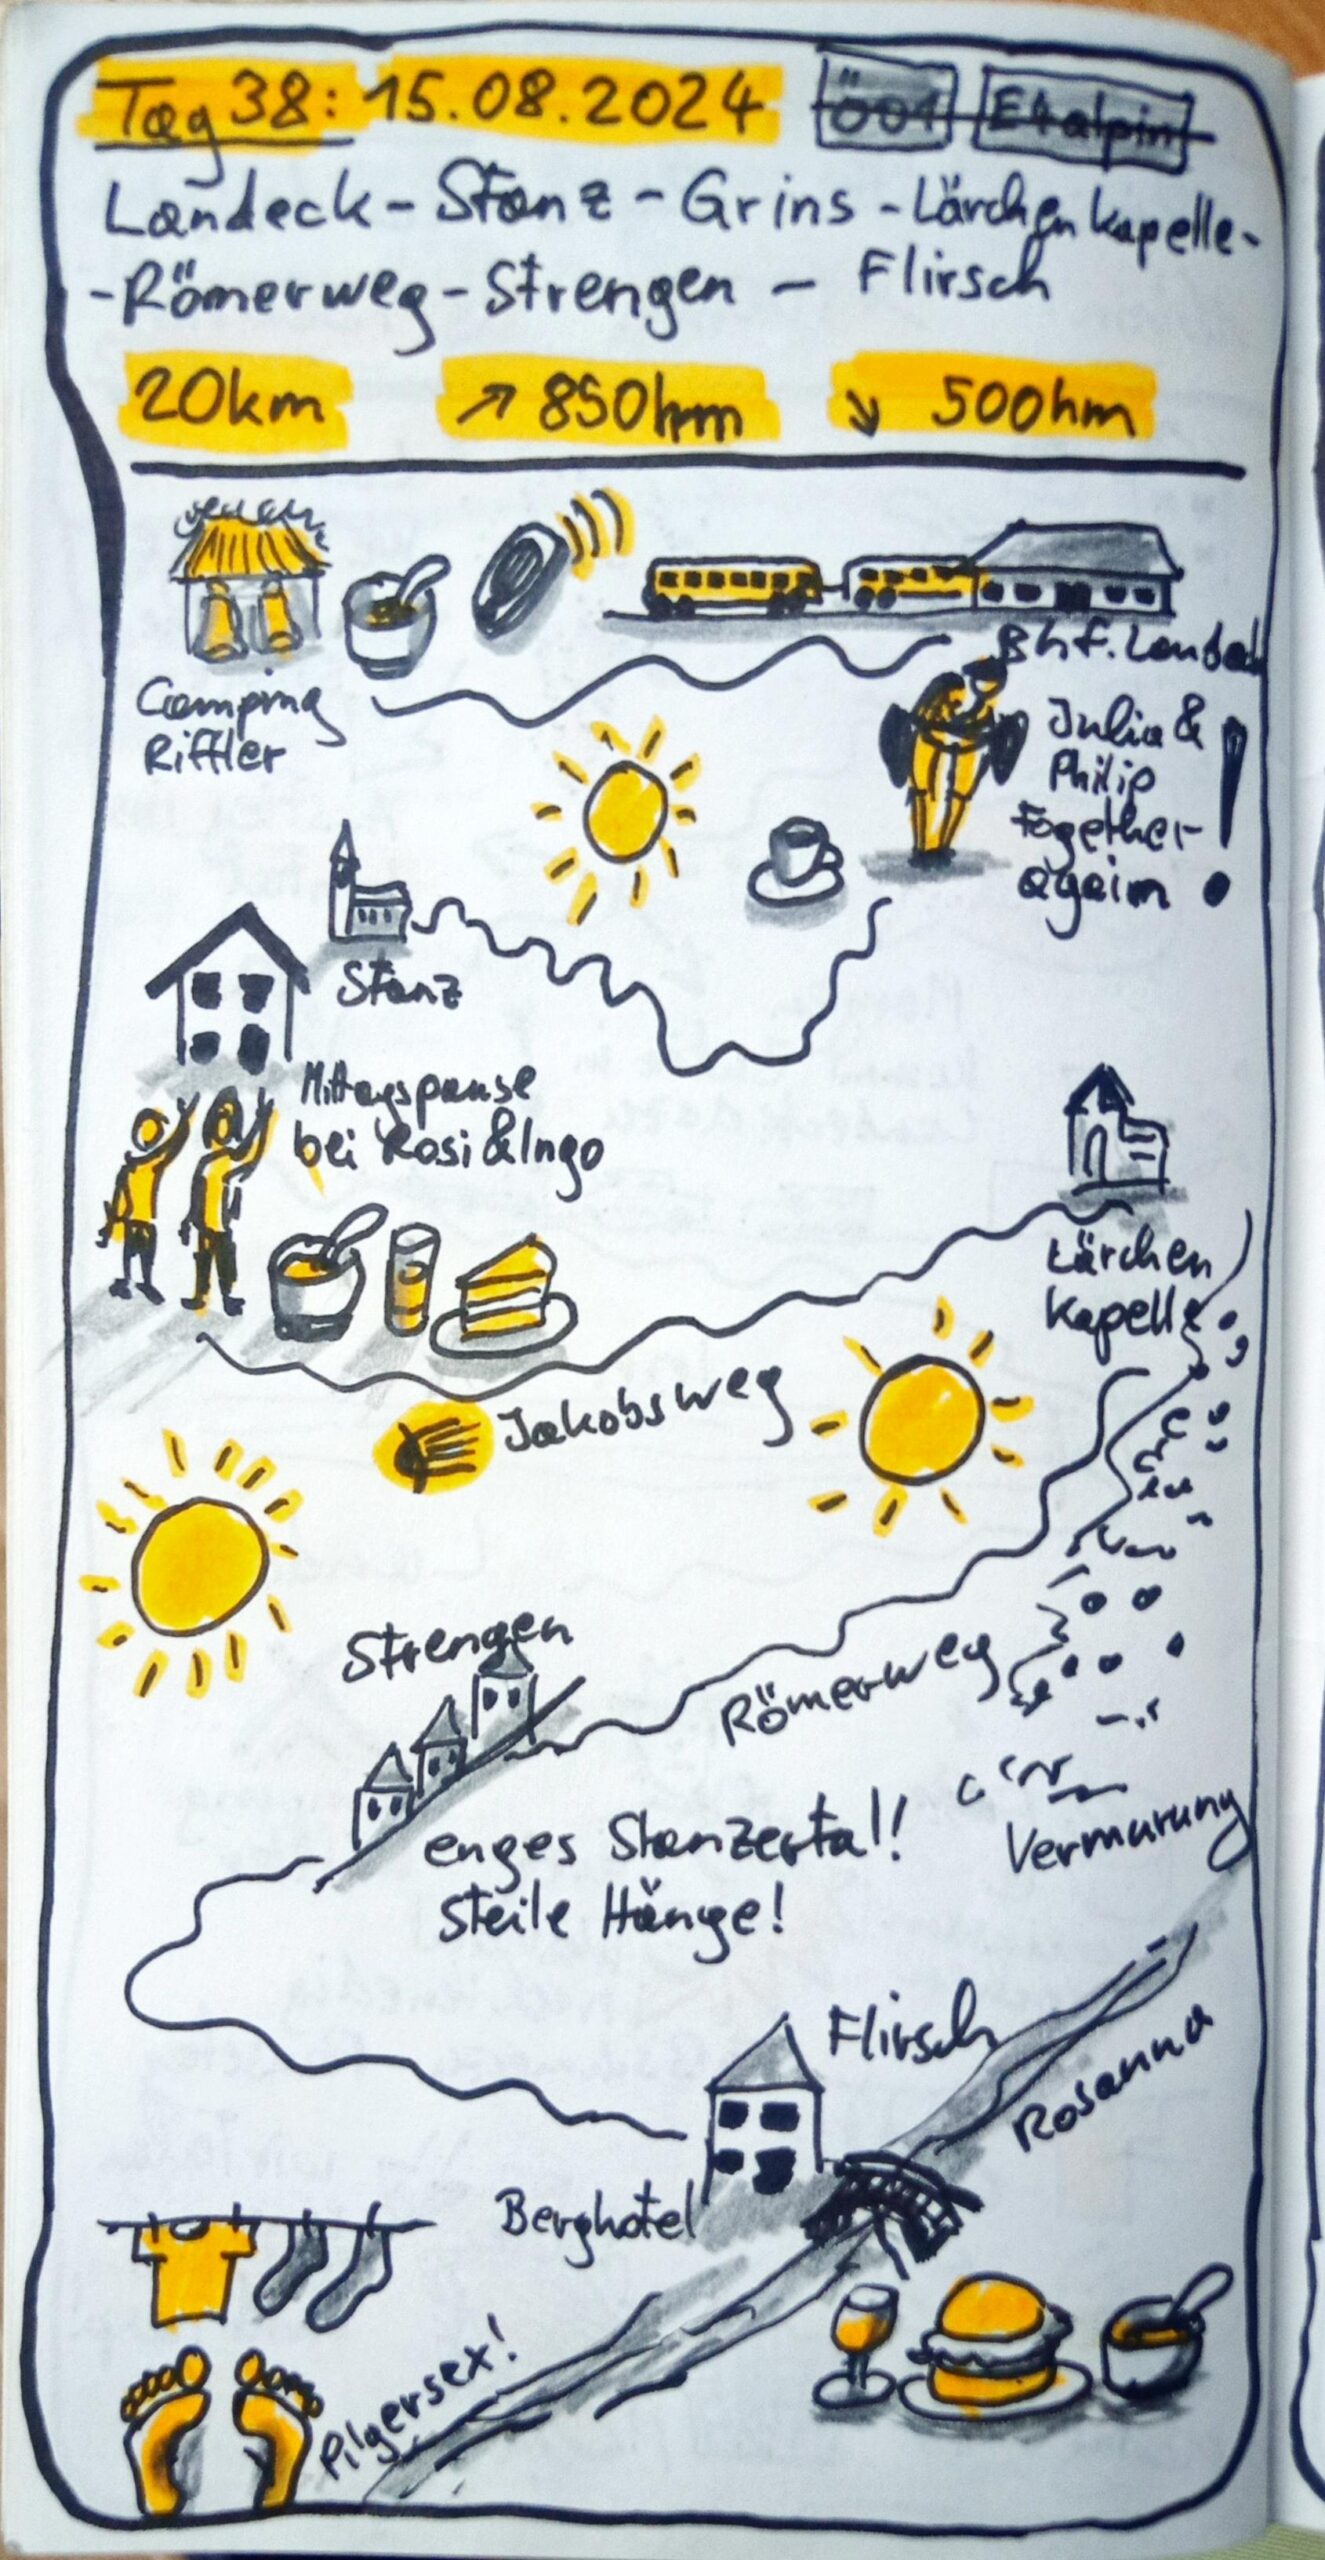 Tag 38: 15.08.2024 Ö01 E4 alpin
Landeck - Stanz - Grins - Lärchenkapelle -
- Römerweg - Strengen - Flirsch
20km ↗ 850hm ↘ 500hm
Bhf. Landeck
Camping
Riffler
Julia &
Philip
together
again !
Stanz
Mittagspause
bei Rosi & Ingo
Lärchen
kapelle
Jakobsweg
Strengen
Römerweg
enges Stanzertal!
steile Hänge!
Vermurung
Flirsch
Rosanna
Berghotel
Pilgersex!